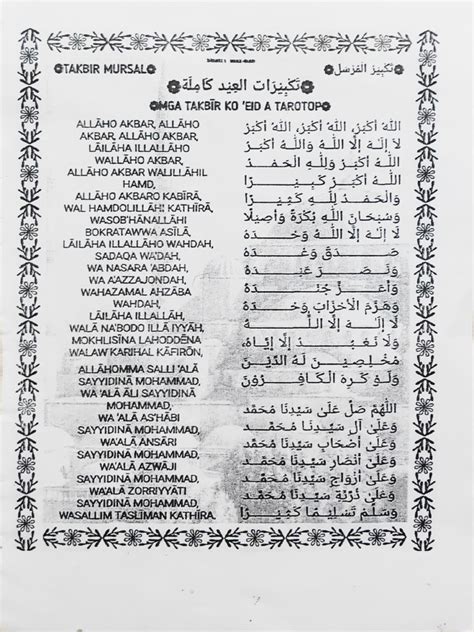 TAKBIR MURSAL
تَكْبِيْرُ المُرْسَلِ
تَكْبِيْرَات العِيْد كَامِلَة
MGA TAKBĪR KO 'EID A TAROTOP
ALLĀHO AKBAR, ALLĀHO
AKBAR, ALLĀHO AKBAR,
LĀILĀHA ILLALLĀHO
WALLĀHO AKBAR,
ALLĀHO AKBAR WALILLĀHIL
HAMD,
ALLĀHO AKBARO KABĪRĀ,
WAL HAMDOLILLĀHI KATHĪRĀ,
WASOB'HĀNALLĀHI
BOKRATAWWA ASĪLĀ,
LĀILĀHA ILLALLĀHO WAHDAH,
SADAQA WA'DAH,
WA NASARA 'ABDAH,
WA A'AZZAJONDAH,
WAHAZAMAL AHZĀBA
WAHDAH,
LĀILĀHA ILLALLĀH,
WALĀ NA'BODO ILLĀ IYYĀH,
MOKHLISĪNA LAHODDĒNA
WALAW KARIHAL KĀFIRŌN,
ALLĀHOMMA SALLI 'ALĀ
SAYYIDINĀ MOHAMMAD,
WA 'ALĀ ĀLI SAYYIDINĀ
MOHAMMAD,
WA'ALĀ AS'HĀBI
SAYYIDINĀ MOHAMMAD,
WA'ALĀ ANSĀRI
SAYYIDINĀ MOHAMMAD,
WA'ALĀ AZWĀJI
SAYYIDINĀ MOHAMMAD,
WA'ALĀ ZORRIYYĀTI
SAYYIDINĀ MOHAMMAD,
WASALLIM TASLĪMAN KATHĪRĀ.
اَللهُ أَكْبَرُ، اَللهُ أَكْبَرُ، اَللهُ أَكْبَرُ
لَا إِلَهَ إِلَّا اللَّهُ وَاللَّهُ أَكْبَرُ
اَللَّهُ أَكْبَرُ وَلِلَّهِ الْحَمْدُ
اَللَّهُ أَكْبَرُ كَبِيْرًا
وَالْحَمْدُ لِلَّهِ كَثِيْرًا
وَسُبْحَانَ اللهِ بُكْرَةً وَأَصِيْلًا
لَا إِلَهَ إِلَّا اللَّهُ وَحْدَهُ
صَدَقَ وَعْدَهُ
وَنَصَرَ عَبْدَهُ
وَأَعَزَّ جُنْدَهُ
وَهَزَمَ الْأَحْزَابَ وَحْدَهُ
لَا إِلَهَ إِلَّا اللَّهُ
وَلَا نَعْبُدُ إِلَّا إِيَّاهُ،
مُخْلِصِيْنَ لَهُ الدِّيْنَ
وَلَوْ كَرِهَ الْكَافِرُوْنَ
اَللَّهُمَّ صَلِّ عَلَى سَيِّدِنَا مُحَمَّدٍ
وَعَلَى آلِ سَيِّدِنَا مُحَمَّدٍ
وَعَلَى أَصْحَابِ سَيِّدِنَا مُحَمَّدٍ
وَعَلَى أَنْصَارِ سَيِّدِنَا مُحَمَّدٍ
وَعَلَى أَزْوَاجِ سَيِّدِنَا مُحَمَّدٍ
وَعَلَى ذُرِّيَّةِ سَيِّدِنَا مُحَمَّدٍ
وَسَلِّمْ تَسْلِيْمًا كَثِيْرًا